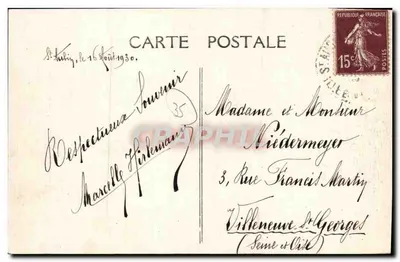 CARTE POSTALE
le 16 Août 1930.
REPUBLIQUE FRANÇAISE
15c
POSTES
Respectueux Souvenir
35
Marcelle
Madame et Monsieur
Niedermeyer
3, Rue Francis Martin
Villeneuve St Georges
(Seine et Oise)